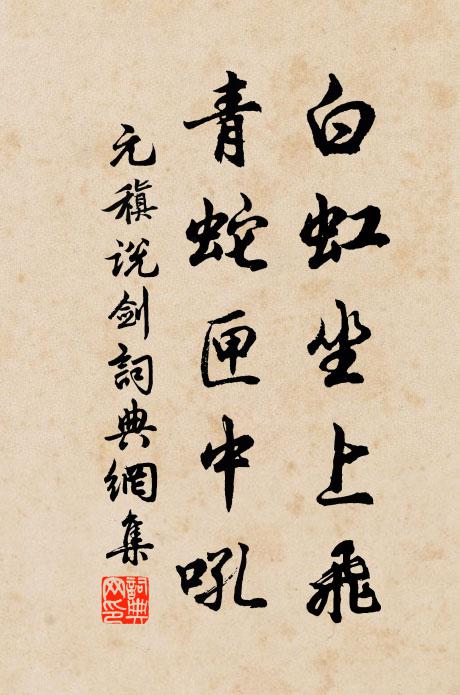 白虹坐上飛
青蛇匣中吼
元稹说劍詞典網集
詞典網印